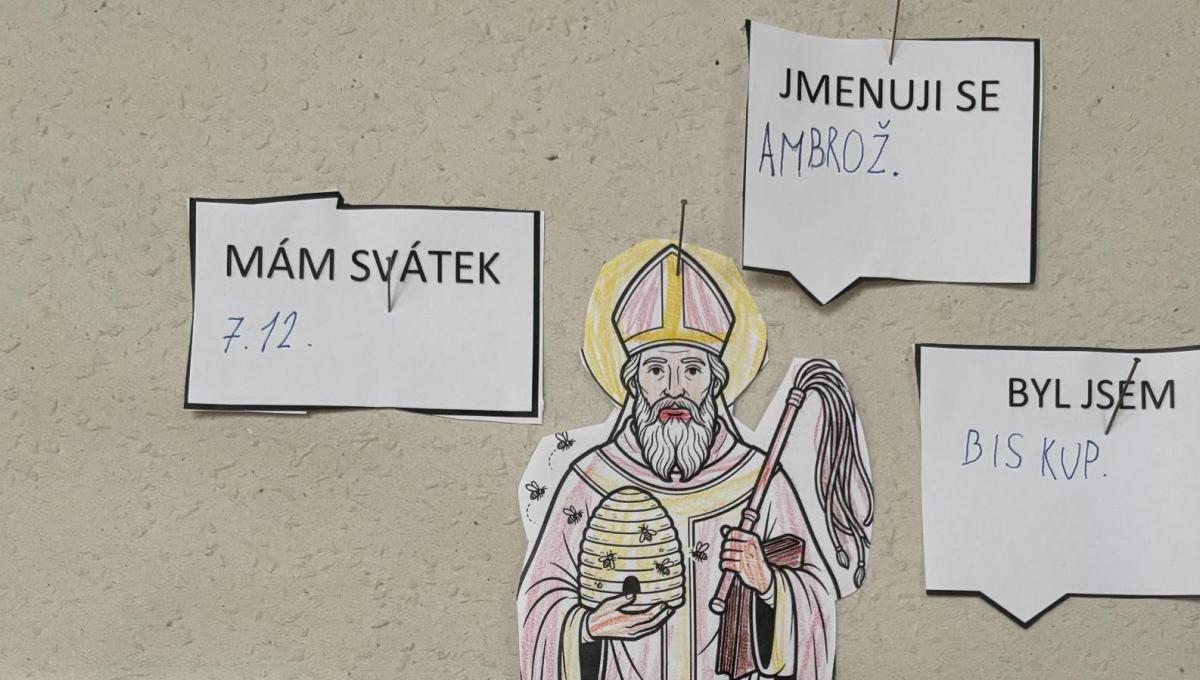 JMENUJI SE
AMBROŽ.
MÁM SVÁTEK
7.12.
BYL JSEM
BISKUP.